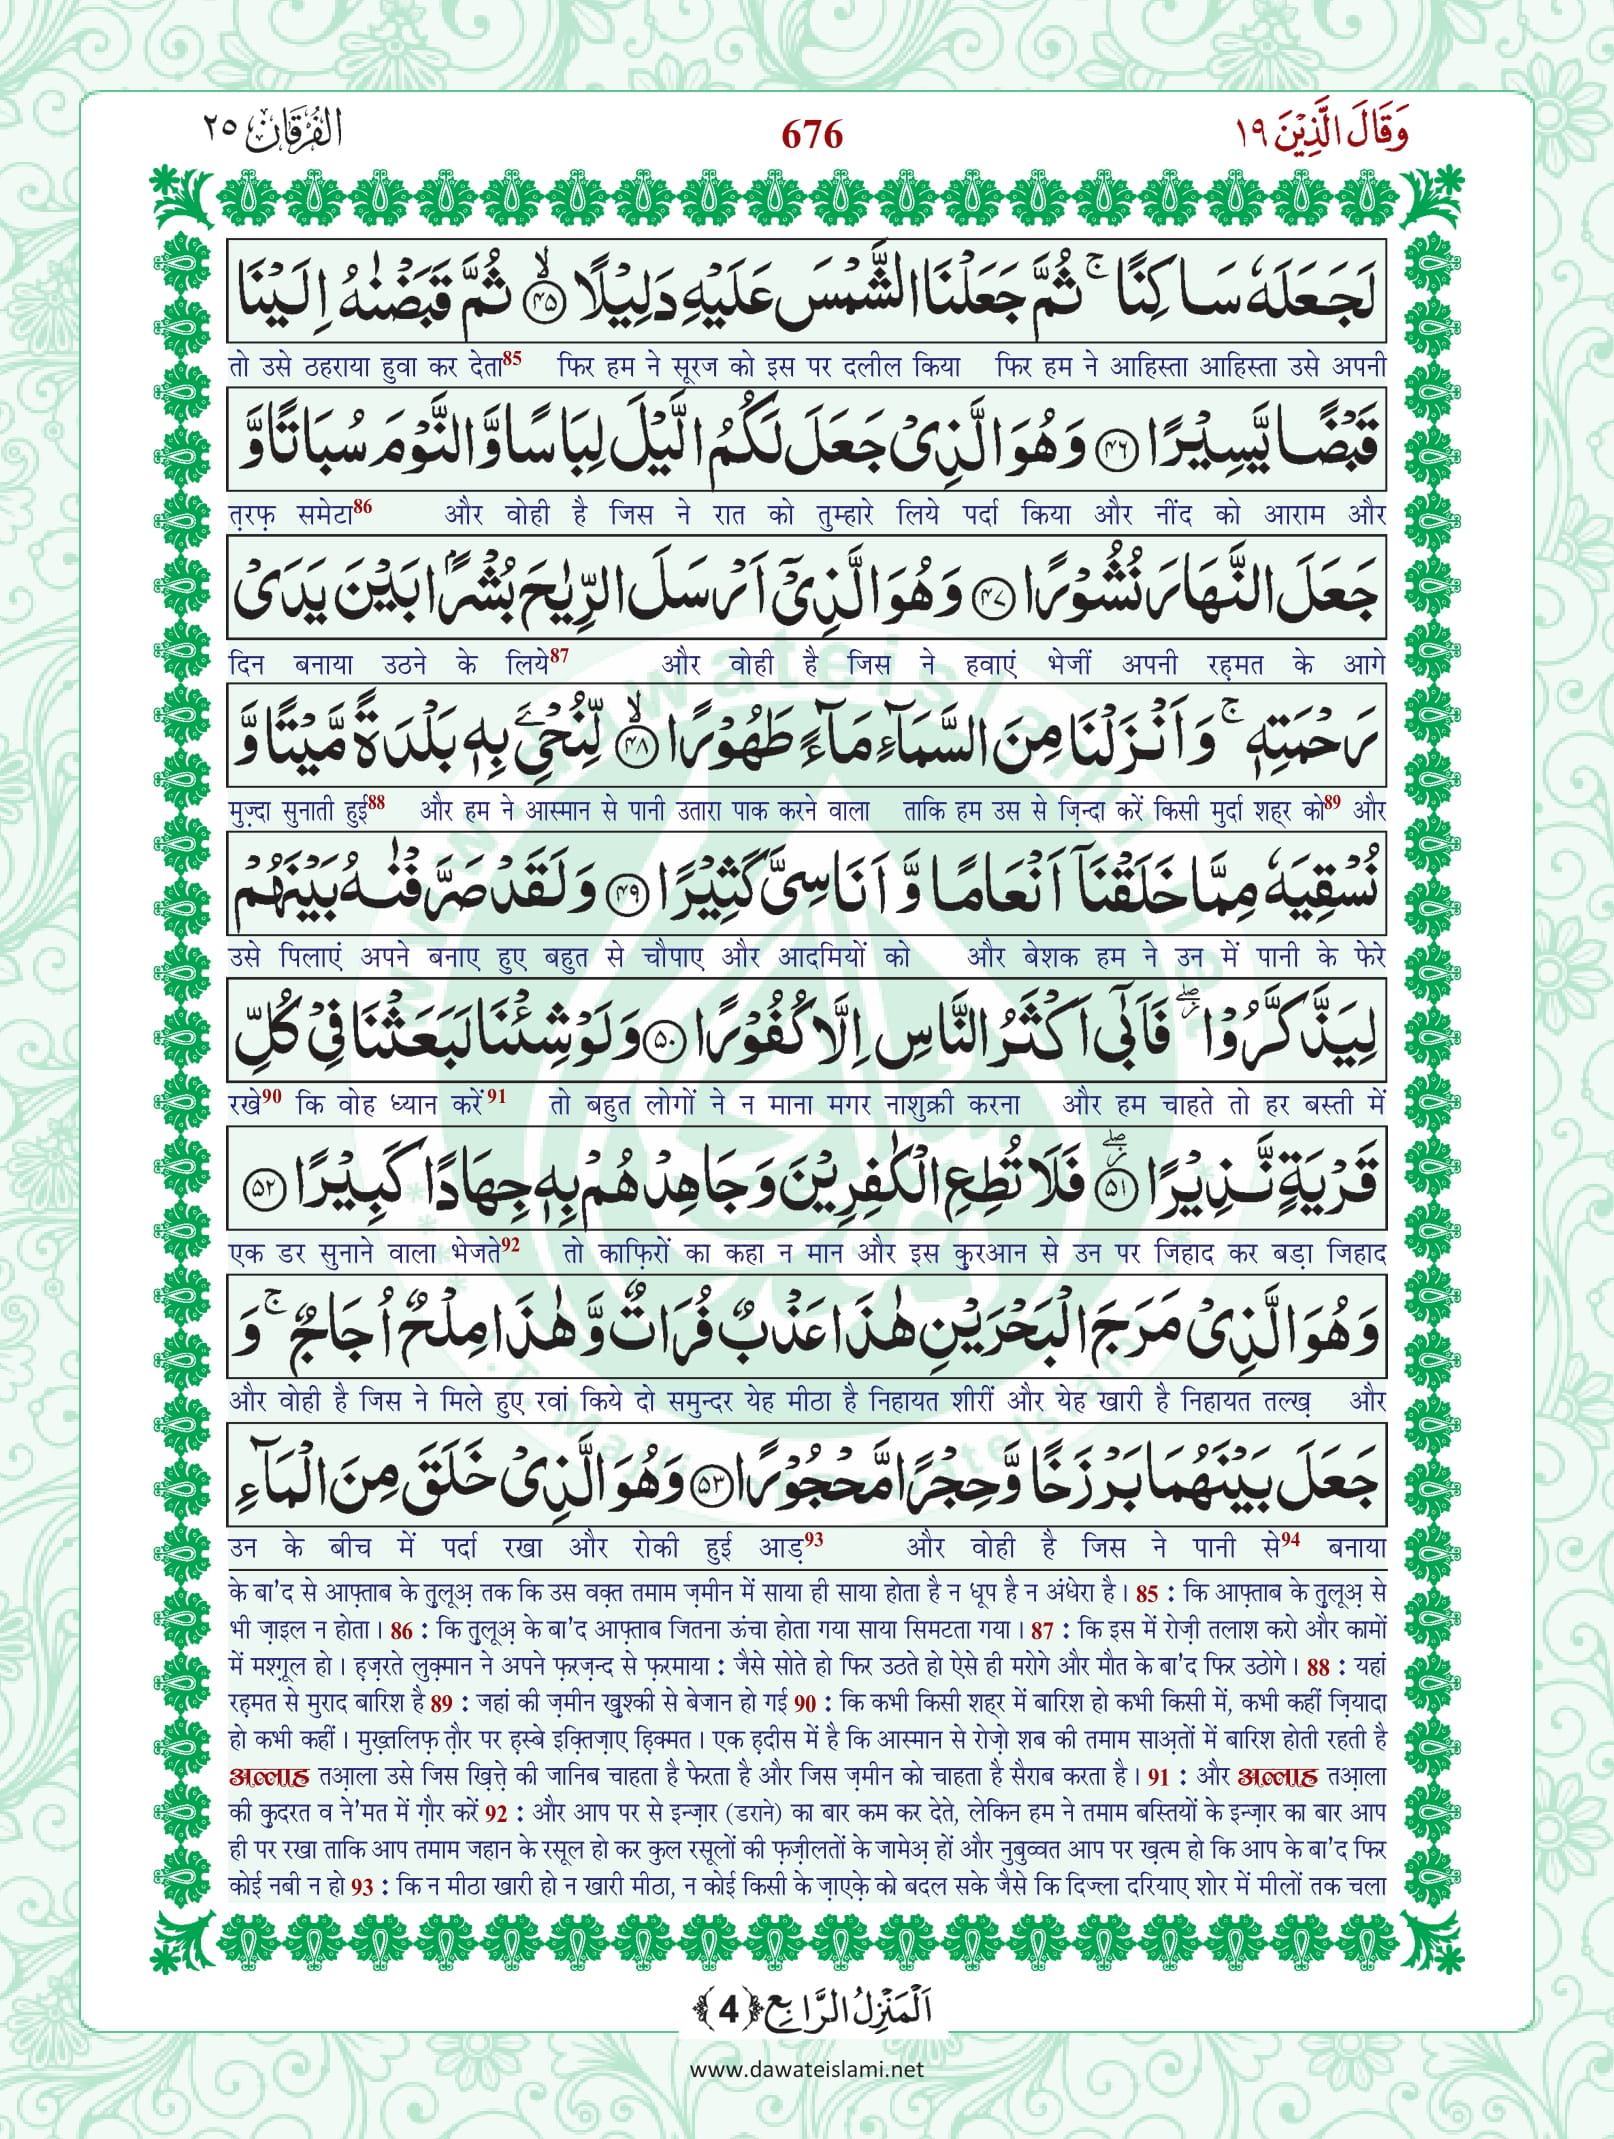 وَقَالَ الَّذِيْنَ ١٩
676
الفُرْقَان ٢٥
لَجَعَلَهٗ سَاكِنًا ۚ ثُمَّ جَعَلْنَا الشَّمْسَ عَلَيْهِ دَلِيْلًا ۙ﴿۴۵﴾ ثُمَّ قَبَضْنٰهُ اِلَيْنَا
तो उसे ठहराया हुवा कर देता85 फिर हम ने सूरज को इस पर दलील किया फिर हम ने आहिस्ता आहिस्ता उसे अपनी
قَبْضًا يَّسِيْرًا ﴿۴۶﴾ وَهُوَ الَّذِيْ جَعَلَ لَكُمُ الَّيْلَ لِبَاسًا وَّ النَّوْمَ سُبَاتًا وَّ
त़रफ़ समेटा86 और वोही है जिस ने रात को तुम्हारे लिये पर्दा किया और नींद को आराम और
جَعَلَ النَّهَارَ نُشُوْرًا ﴿۴۷﴾ وَهُوَ الَّذِيْۤ اَرْسَلَ الرِّيٰحَ بُشْرًۢا بَيْنَ يَدَيْ
दिन बनाया उठने के लिये87 और वोही है जिस ने हवाएं भेजीं अपनी रह़मत के आगे
رَحْمَتِهٖ ۚ وَ اَنْزَلْنَا مِنَ السَّمَآءِ مَآءً طَهُوْرًا ۙ﴿۴۸﴾ لِّنُحْيِۦَ بِهٖ بَلْدَةً مَّيْتًا وَّ
मुज़्दा सुनाती हुई88 और हम ने आस्मान से पानी उतारा पाक करने वाला ताकि हम उस से ज़िन्दा करें किसी मुर्दा शह्‌र को89 और
نُسْقِيَهٗ مِمَّا خَلَقْنَاۤ اَنْعَامًا وَّ اَنَاسِيَّ كَثِيْرًا ﴿۴۹﴾ وَ لَقَدْ صَرَّفْنٰهُ بَيْنَهُمْ
उसे पिलाएं अपने बनाए हुए बहुत से चौपाए और आदमियों को और बेशक हम ने उन में पानी के फेरे
لِيَذَّكَّرُوْا ۖۗ فَاَبٰۤى اَكْثَرُ النَّاسِ اِلَّا كُفُوْرًا ﴿۵۰﴾ وَ لَوْ شِئْنَا لَبَعَثْنَا فِيْ كُلِّ
रखे90 कि वोह ध्यान करें91 तो बहुत लोगों ने न माना मगर नाशुक्री करना और हम चाहते तो हर बस्ती में
قَرْيَةٍ نَّذِيْرًا ۖ﴿۵۱﴾ فَلَا تُطِعِ الْكٰفِرِيْنَ وَ جَاهِدْهُمْ بِهٖ جِهَادًا كَبِيْرًا ﴿۵۲﴾
एक डर सुनाने वाला भेजते92 तो काफ़िरों का कहा न मान और इस क़ुरआन से उन पर जिहाद कर बड़ा जिहाद
وَ هُوَ الَّذِيْ مَرَجَ الْبَحْرَيْنِ هٰذَا عَذْبٌ فُرَاتٌ وَّ هٰذَا مِلْحٌ اُجَاجٌ ۚ وَ
और वोही है जिस ने मिले हुए रवां किये दो समुन्दर येह मीठा है निहायत शीरीं और येह खारी है निहायत तल्ख़ और
جَعَلَ بَيْنَهُمَا بَرْزَخًا وَّ حِجْرًا مَّحْجُوْرًا ﴿۵۳﴾ وَهُوَ الَّذِيْ خَلَقَ مِنَ الْمَآءِ
उन के बीच में पर्दा रखा और रोकी हुई आड़93 और वोही है जिस ने पानी से94 बनाया
के बा'द से आफ़्ताब के त़ुलूअ़ तक कि उस वक़्त तमाम ज़मीन में साया ही साया होता है न धूप है न अंधेरा है। 85 : कि आफ़्ताब के त़ुलूअ़ से
भी ज़ाइल न होता। 86 : कि त़ुलूअ़ के बा'द आफ़्ताब जितना ऊंचा होता गया साया सिमटता गया। 87 : कि इस में रोज़ी तलाश करो और कामों
में मश्ग़ूल हो। ह़ज़रते लुक़्मान ने अपने फ़रज़न्द से फ़रमाया : जैसे सोते हो फिर उठते हो ऐसे ही मरोगे और मौत के बा'द फिर उठोगे। 88 : यहां
रह़मत से मुराद बारिश है 89 : जहां की ज़मीन ख़ुश्की से बेजान हो गई 90 : कि कभी किसी शह्‌र में बारिश हो कभी किसी में, कभी कहीं ज़ियादा
हो कभी कहीं। मुख़्तलिफ़ त़ौर पर ह़स्बे इक़्तिज़ाए ह़िक्मत। एक ह़दीस में है कि आस्मान से रोज़ो शब की तमाम साअ़तों में बारिश होती रहती है
अल्लाह तआ़ला उसे जिस ख़ित़्त़े की जानिब चाहता है फेरता है और जिस ज़मीन को चाहता है सैराब करता है। 91 : और अल्लाह तआ़ला
की क़ुदरत व ने'मत में ग़ौर करें 92 : और आप पर से इन्ज़ार (डराने) का बार कम कर देते, लेकिन हम ने तमाम बस्तियों के इन्ज़ार का बार आप
ही पर रखा ताकि आप तमाम जहान के रसूल हो कर कुल रसूलों की फ़ज़ीलतों के जामेअ़ हों और नुबुव्वत आप पर ख़त्म हो कि आप के बा'द फिर
कोई नबी न हो 93 : कि न मीठा खारी हो न खारी मीठा, न कोई किसी के ज़ाएक़े को बदल सके जैसे कि दिज्ला दरियाए शोर में मीलों तक चला
اَلْمَنْزِلُ الرَّابِع ﴿4﴾
www.dawateislami.net